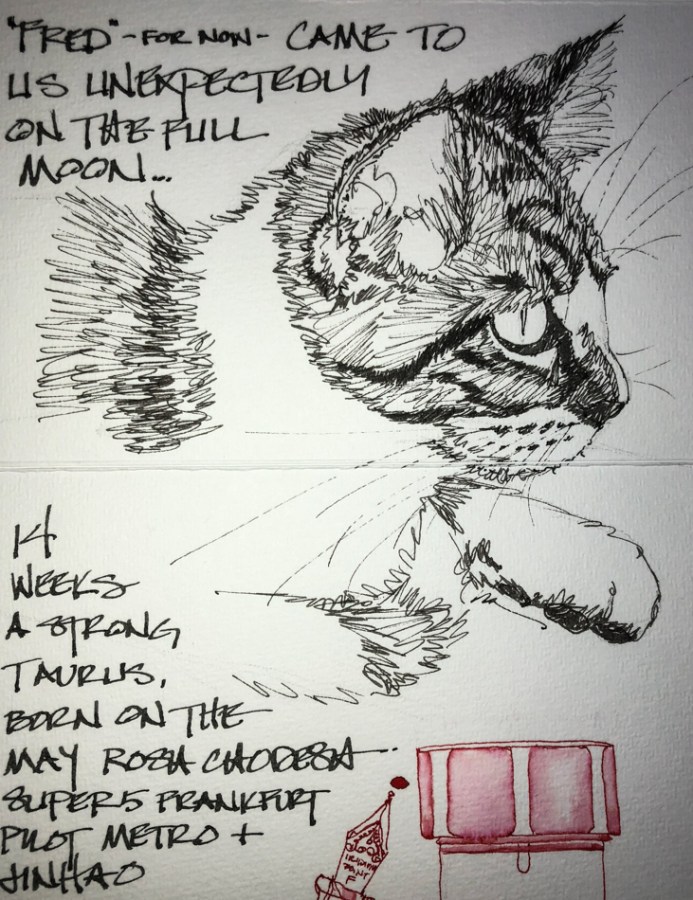 "FRED" -FOR NOW- CAME TO
US UNEXPECTEDLY
ON THE FULL
MOON...
14
WEEKS
A STRONG
TAURUS,
BORN ON THE
MAY ROSH CHODESH...
SUPER5 FRANKFURT
PILOT METRO +
JINHAO
IRIDIUM
POINT
F